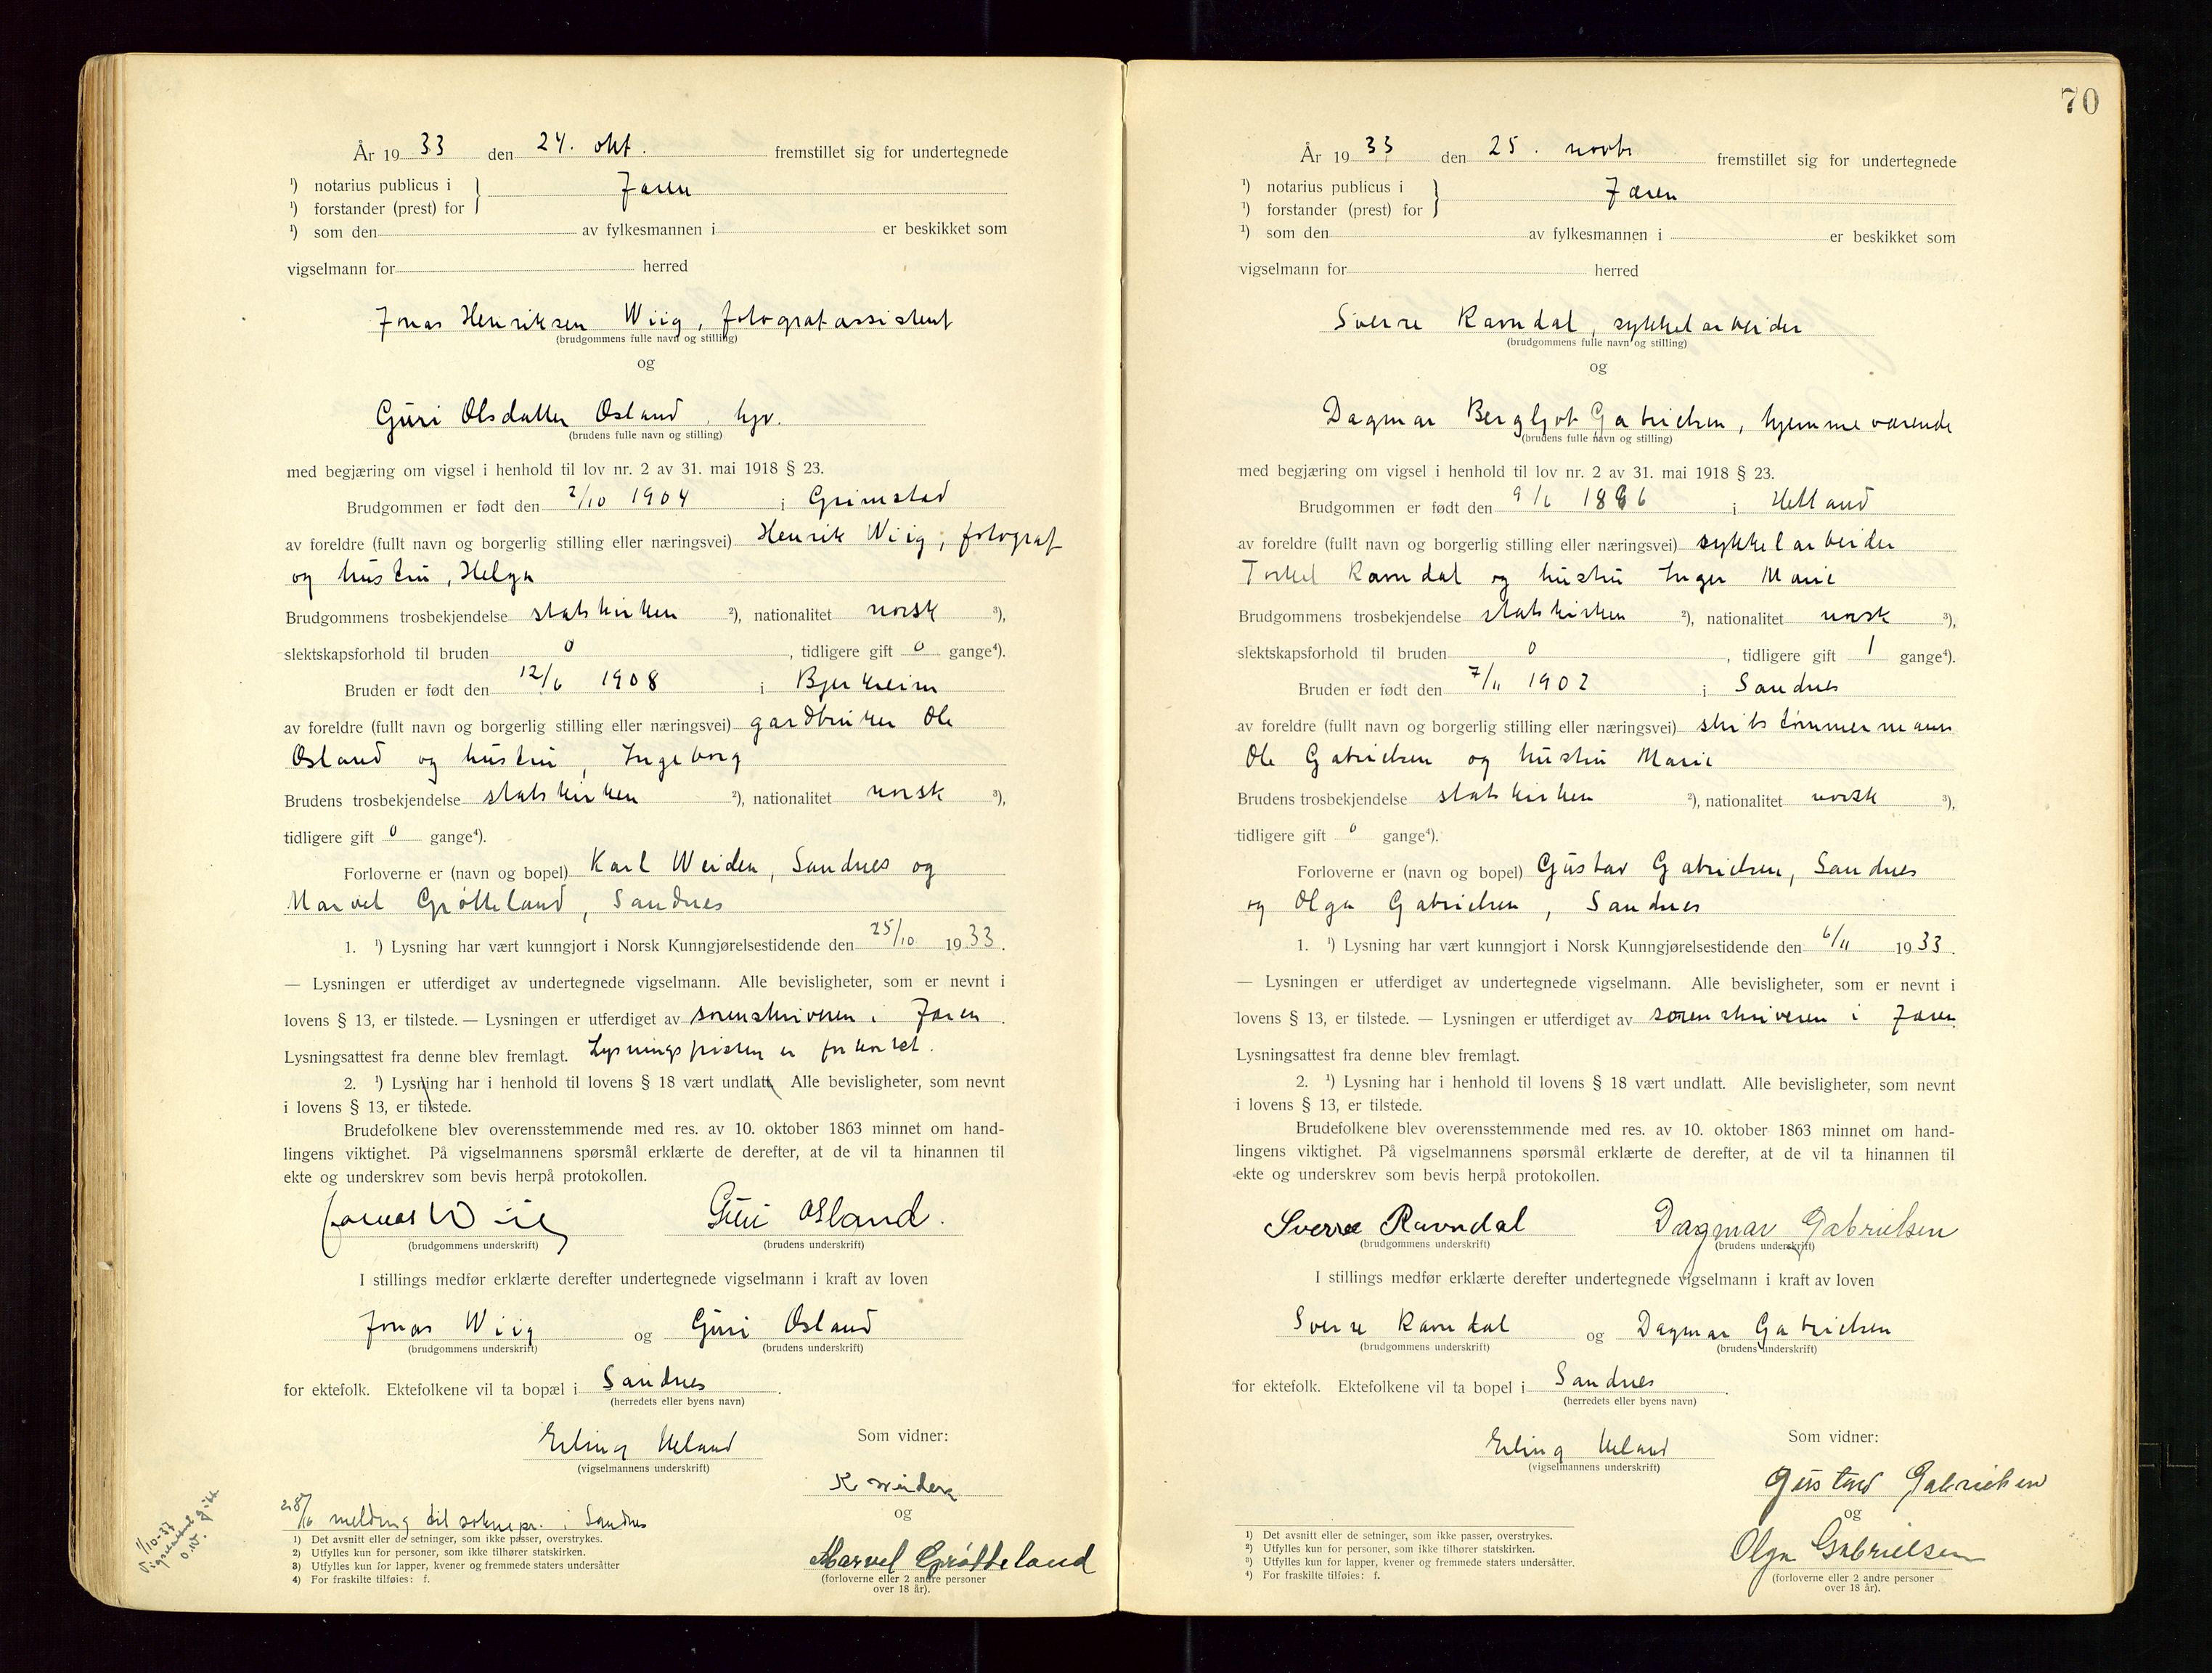 År 1933 den 24. okt. fremstillet sig for undertegnede
¹) notarius publicus i } Jæren
¹) forstander (prest) for
¹) som den av fylkesmannen i er beskikket som
vigselmann for herred
Jonas Henriksen Wiig, fotografassistent
(brudgommens fulle navn og stilling)
og
Guri Olsdatter Osland, hjv.
(brudens fulle navn og stilling)
med begjæring om vigsel i henhold til lov nr. 2 av 31. mai 1918 § 23.
Brudgommen er født den 2/10 1904 i Grimstad
av foreldre (fullt navn og borgerlig stilling eller næringsvei) Henrik Wiig, fotograf
og hustru, Helga
Brudgommens trosbekjendelse statskirken ²), nationalitet norsk ³),
slektskapsforhold til bruden 0, tidligere gift 0 gange⁴).
Bruden er født den 12/6 1908 i Bjerkreim
av foreldre (fullt navn og borgerlig stilling eller næringsvei) gardbruker Ole
Osland og hustru, Ingeborg
Brudens trosbekjendelse statskirken ²), nationalitet norsk ³),
tidligere gift 0 gange⁴).
Forloverne er (navn og bopel) Karl Weiden, Sandnes og
Marvel Grøtteland, Sandnes
1. ¹) Lysning har vært kunngjort i Norsk Kunngjørelsestidende den 25/10 1933.
— Lysningen er utferdiget av undertegnede vigselmann. Alle bevisligheter, som er nevnt i
lovens § 13, er tilstede. — Lysningen er utferdiget av sorenskriveren i Jæren.
Lysningsattest fra denne blev fremlagt. Lysningsfristen er forkortet.
2. ¹) Lysning har i henhold til lovens § 18 vært undlatt. Alle bevisligheter, som nevnt
i lovens § 13, er tilstede.
Brudefolkene blev overensstemmende med res. av 10. oktober 1863 minnet om hand-
lingens viktighet. På vigselmannens spørsmål erklærte de derefter, at de vil ta hinannen til
ekte og underskrev som bevis herpå protokollen.
Jonas Wiig Guri Osland.
(brudgommens underskrift) (brudens underskrift)
I stillings medfør erklærte derefter undertegnede vigselmann i kraft av loven
Jonas Wiig og Guri Osland
(brudgommens underskrift) (brudens underskrift)
for ektefolk. Ektefolkene vil ta bopæl i Sandnes.
(herredets eller byens navn)
Erling Ueland Som vidner:
(vigselmannens underskrift)
K Weiden
og
28/10 melding til soknepr. i Sandnes
Marvel Grøtteland
(forloverne eller 2 andre personer
over 18 år).
1) Det avsnitt eller de setninger, som ikke passer, overstrykes.
2) Utfylles kun for personer, som ikke tilhører statskirken.
3) Utfylles kun for lapper, kvener og fremmede staters undersåtter
4) For fraskilte tilføies: f.
70
År 1933 den 25. novbr fremstillet sig for undertegnede
¹) notarius publicus i } Jæren
¹) forstander (prest) for
¹) som den av fylkesmannen i er beskikket som
vigselmann for herred
Sverre Ravndal, sykkelarbeider
(brudgommens fulle navn og stilling)
og
Dagmar Bergljot Gabrielsen, hjemmeværende
(brudens fulle navn og stilling)
med begjæring om vigsel i henhold til lov nr. 2 av 31. mai 1918 § 23.
Brudgommen er født den 9/6 1886 i Hetland
av foreldre (fullt navn og borgerlig stilling eller næringsvei) sykkelarbeider
Torkel Ravndal og hustru Inger Marie
Brudgommens trosbekjendelse statskirken ²), nationalitet norsk ³),
slektskapsforhold til bruden 0, tidligere gift 1 gange⁴).
Bruden er født den 7/11 1902 i Sandnes
av foreldre (fullt navn og borgerlig stilling eller næringsvei) skibstømmermann
Ole Gabrielsen og hustru Marie
Brudens trosbekjendelse statskirken ²), nationalitet norsk ³),
tidligere gift 0 gange⁴).
Forloverne er (navn og bopel) Gustav Gabrielsen, Sandnes
og Olga Gabrielsen, Sandnes
1. ¹) Lysning har vært kunngjort i Norsk Kunngjørelsestidende den 6/11 1933.
— Lysningen er utferdiget av undertegnede vigselmann. Alle bevisligheter, som er nevnt i
lovens § 13, er tilstede. — Lysningen er utferdiget av sorenskriveren i Jæren
Lysningsattest fra denne blev fremlagt.
2. ¹) Lysning har i henhold til lovens § 18 vært undlatt. Alle bevisligheter, som nevnt
i lovens § 13, er tilstede.
Brudefolkene blev overensstemmende med res. av 10. oktober 1863 minnet om hand-
lingens viktighet. På vigselmannens spørsmål erklærte de derefter, at de vil ta hinannen til
ekte og underskrev som bevis herpå protokollen.
Sverre Ravndal Dagmar Gabrielsen
(brudgommens underskrift) (brudens underskrift)
I stillings medfør erklærte derefter undertegnede vigselmann i kraft av loven
Sverre Ravndal og Dagmar Gabrielsen
(brudgommens underskrift) (brudens underskrift)
for ektefolk. Ektefolkene vil ta bopel i Sandnes.
(herredets eller byens navn)
Erling Ueland Som vidner:
(vigselmannens underskrift)
Gustav Gabrielsen
og
Olga Gabrielsen
(forloverne eller 2 andre personer
over 18 år).
1) Det avsnitt eller de setninger, som ikke passer, overstrykes.
2) Utfylles kun for personer, som ikke tilhører statskirken.
3) Utfylles kun for lapper, kvener og fremmede staters undersåtter.
4) For fraskilte tilføies: f.